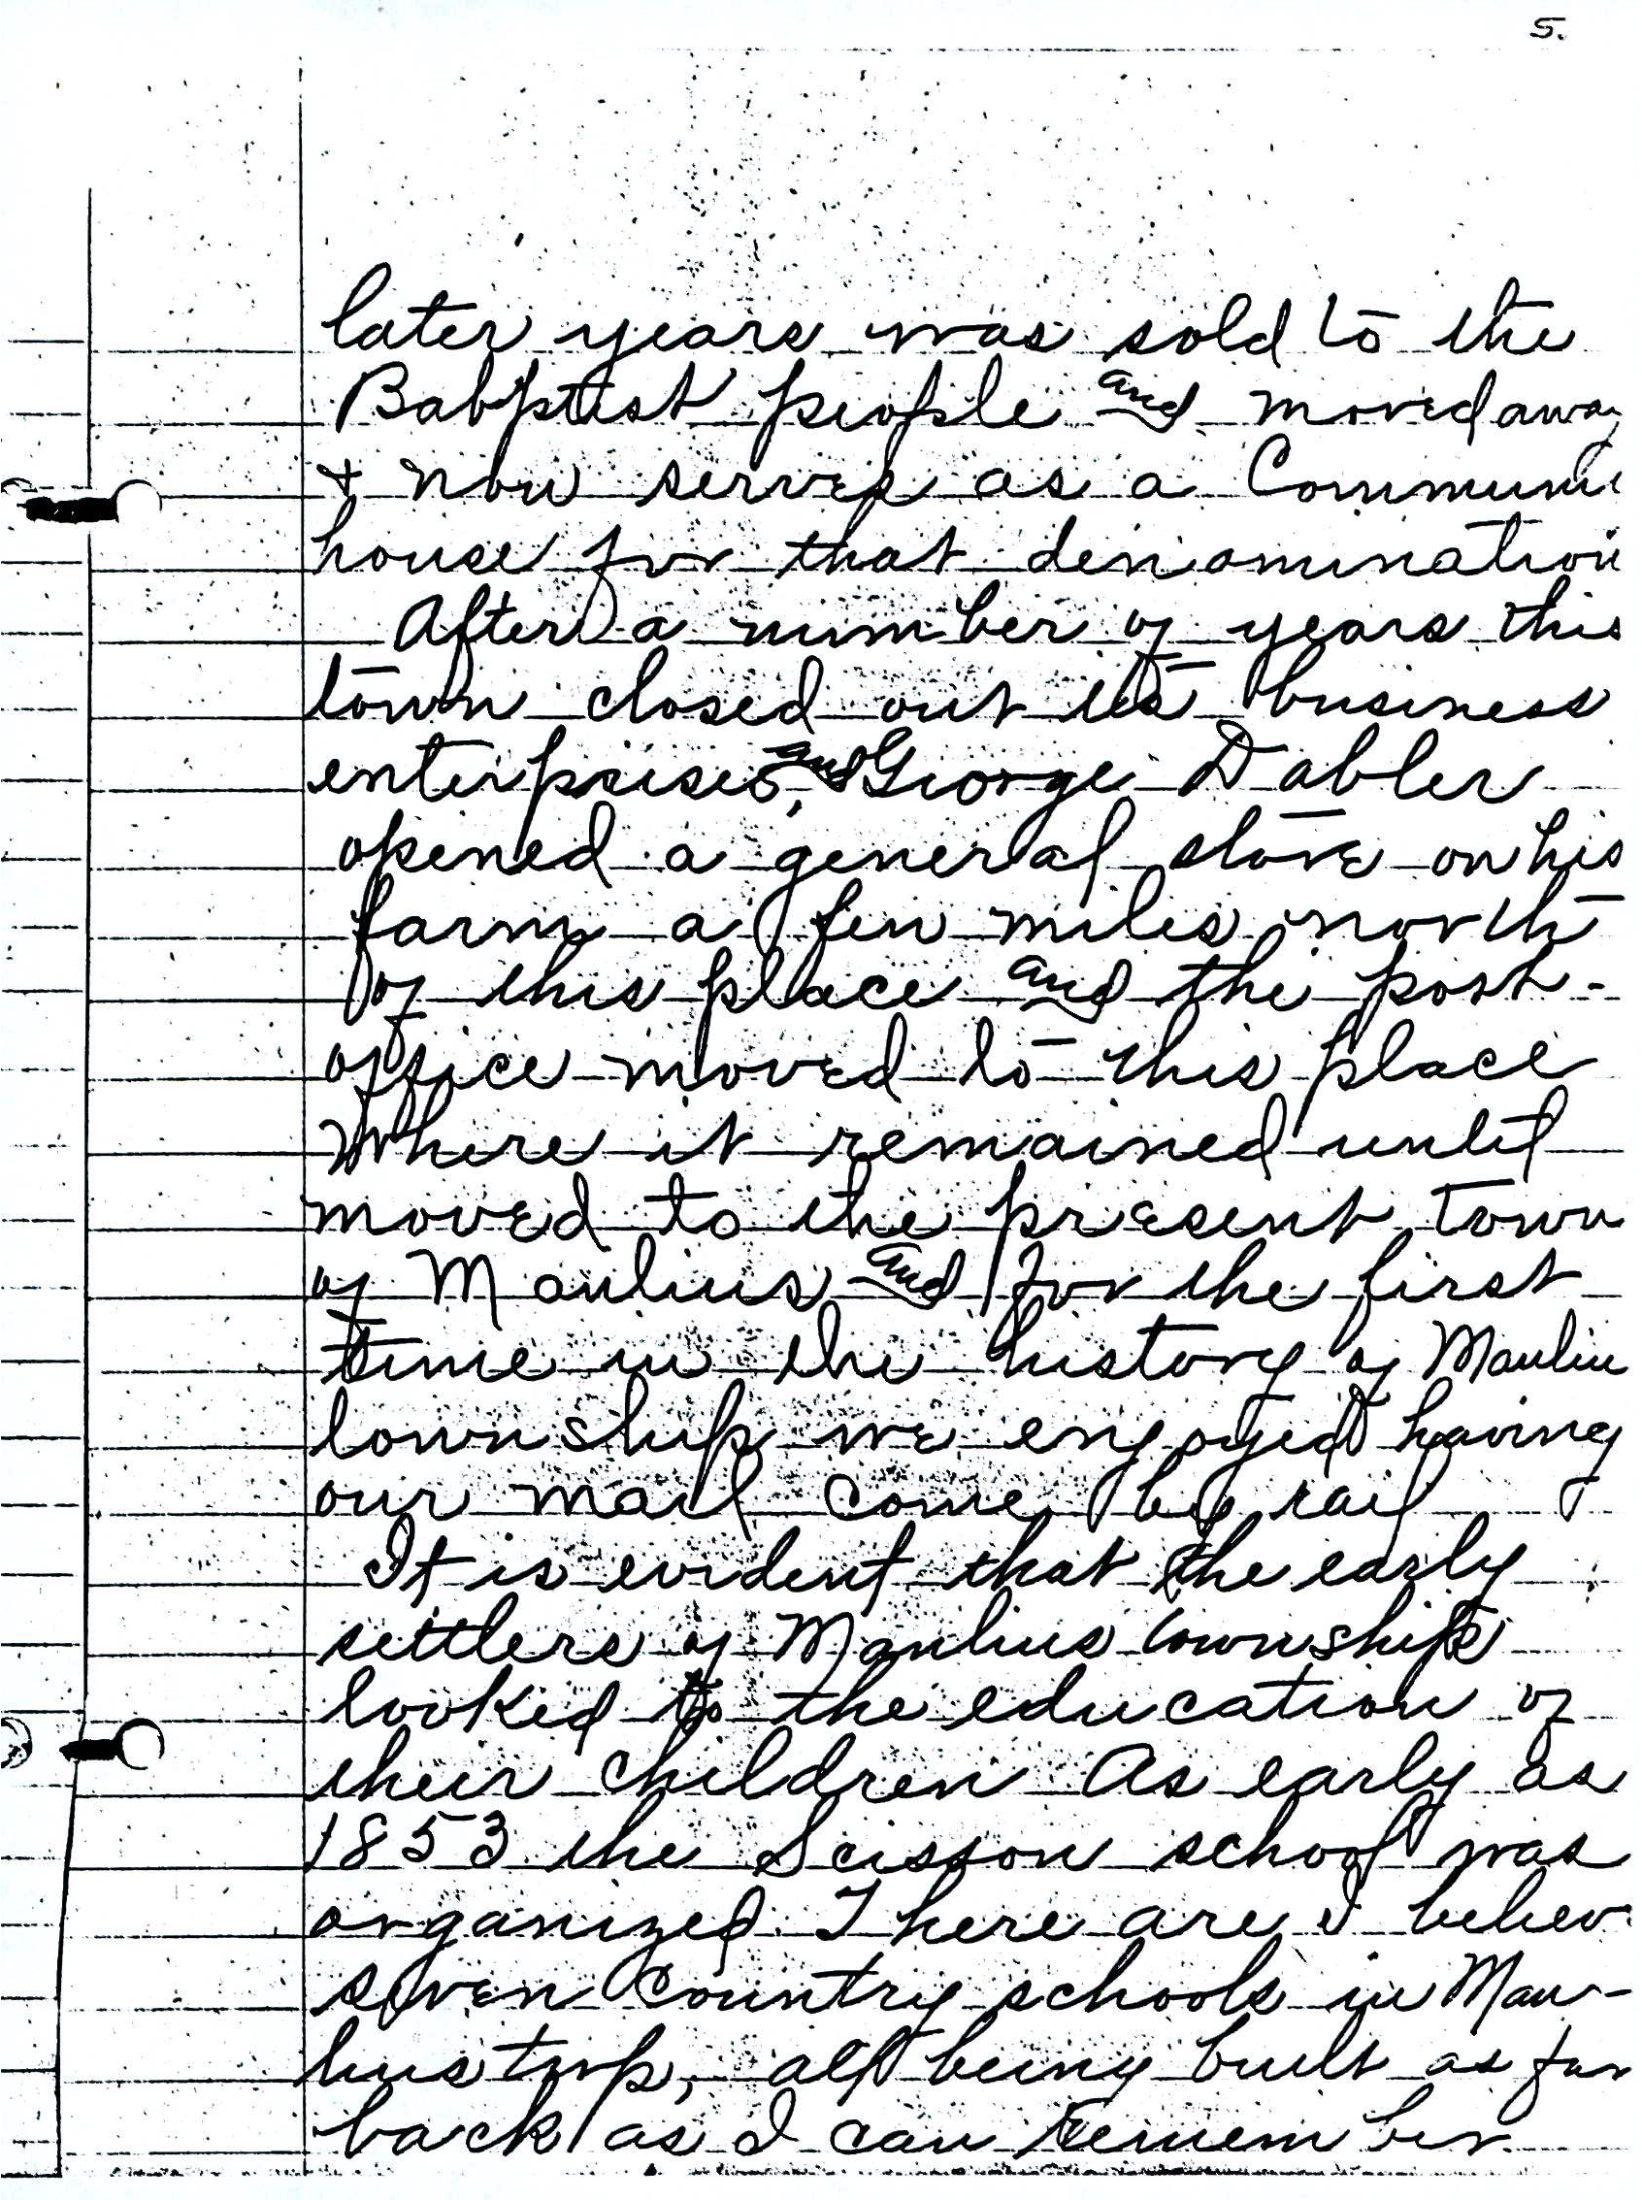 5.
later years was sold to the
Babptist people and moved away
+ now serves as a Communi
house for that denomination
After a number of years this
town closed out its business
enterprises, and George Dabler
opened a general store on his
farm a few miles north
of this place and the post-
office moved to this place
Where it remained until
moved to the present town
of Manlius and for the first
time in the history of Manliu
township we enjoyed having
our mail come by rail
It is evident that the early
settlers of Manlius township
looked to the education of
their children As early as
1853 the Scisson school was
organized There are I believ
seven country schools in Man-
lius twp, all being built as far
back as I can remember